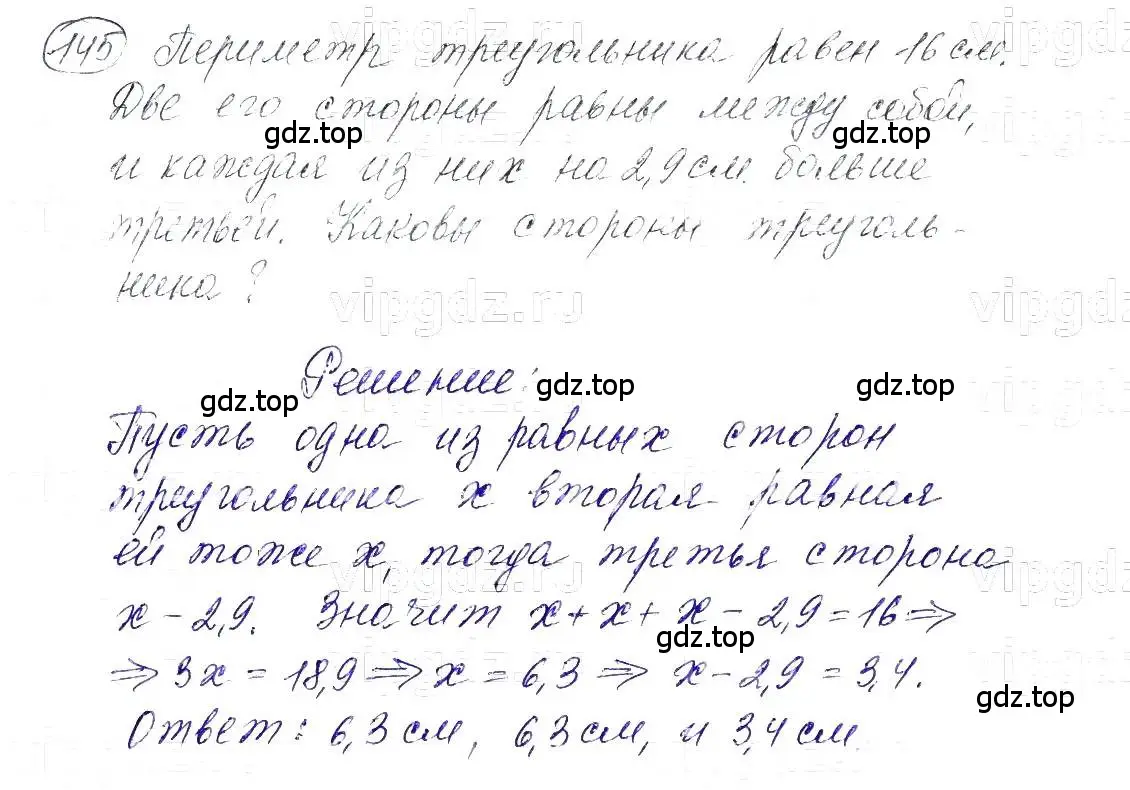 145 Периметр треугольника равен 16 см.
Две его стороны равны между собой,
и каждая из них на 2,9 см. больше
третьей. Каковы стороны треуголь-
ника?
Решение:
Пусть одна из равных сторон
треугольника x вторая равная
ей тоже x, тогда третья сторона
x - 2,9. Значит x + x + x - 2,9 = 16 ⇒
⇒ 3x = 18,9 ⇒ x = 6,3 ⇒ x - 2,9 = 3,4.
Ответ: 6,3 см, 6,3 см, и 3,4 см.
vipgdz.ru
gdz.top
gdz.top
vipgdz.ru
vipgdz.ru
gdz.top
gdz.top
gdz.top
vipgdz.ru
gdz.top
gdz.top